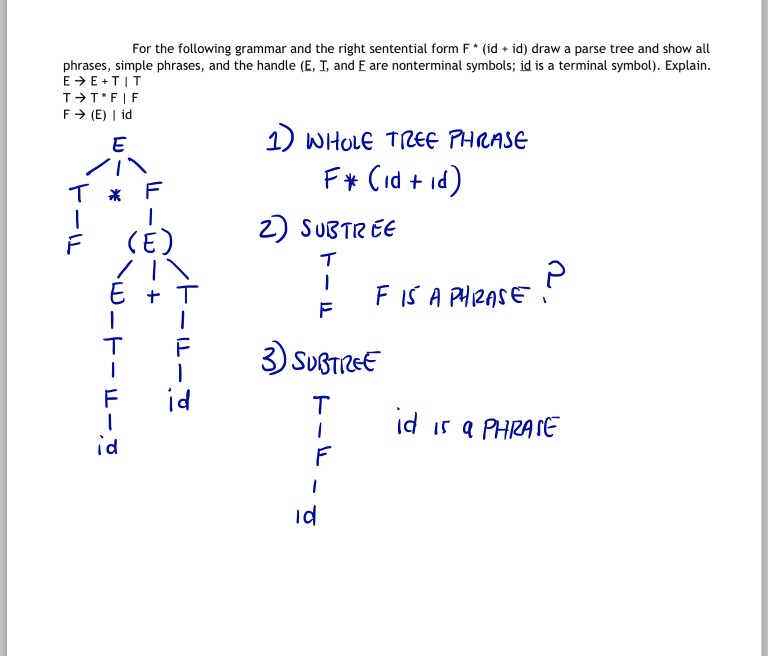 For the following grammar and the right sentential form F * (id + id) draw a parse tree and show all
phrases, simple phrases, and the handle (E, T, and F are nonterminal symbols; id is a terminal symbol). Explain.
E → E + T | T
T → T * F | F
F → (E) | id
E
T * F
F (E)
E + T
T F
F id
id
1) WHOLE TREE PHRASE
F * (id + id)
2) SUBTREE
T
F
F IS A PHRASE ?
3) SUBTREE
T
F
id
id is a PHRASE